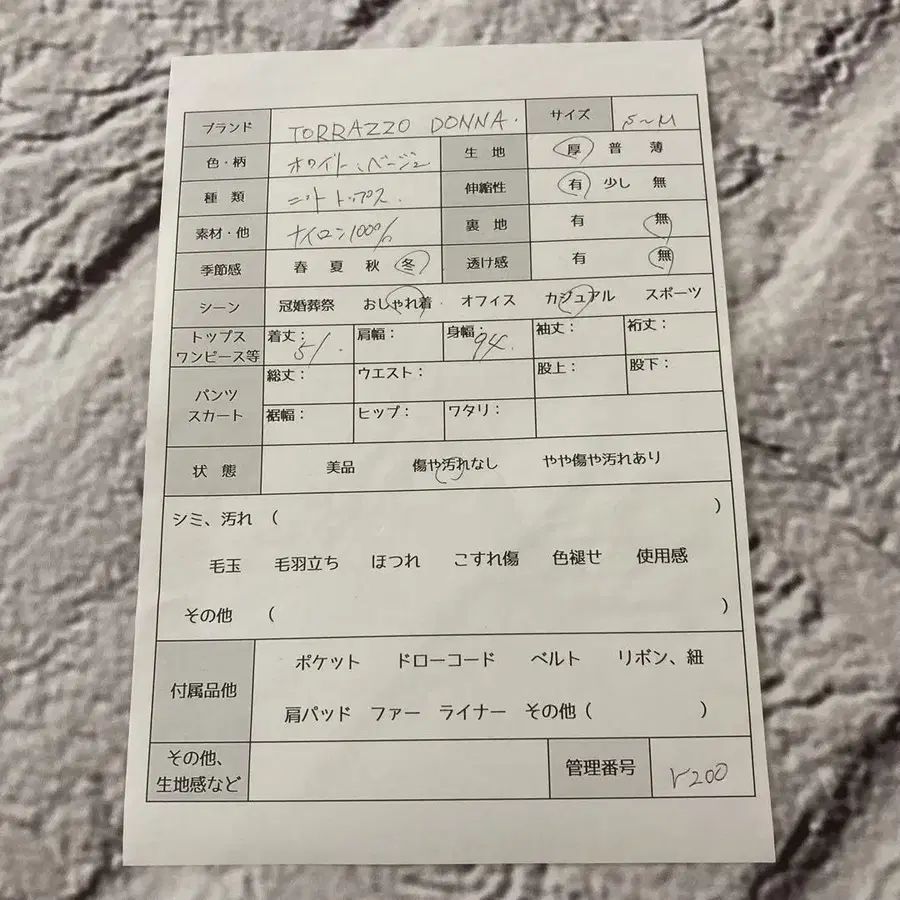 ブランド TORRAZZO DONNA. サイズ S〜M
色・柄 ホワイト、ベージュ 生 地 厚 普 薄
種 類 ニットトップス. 伸縮性 有 少し 無
素材・他 ナイロン100% 裏 地 有 無
季節感 春 夏 秋 冬 透け感 有 無
シーン 冠婚葬祭 おしゃれ着 オフィス カジュアル スポーツ
トップス ワンピース等 着丈: 51. 肩幅: 身幅: 94. 袖丈: 裄丈:
パンツ スカート 総丈: ウエスト: 股上: 股下:
裾幅: ヒップ: ワタリ:
状 態 美品 傷や汚れなし やや傷や汚れあり
シミ、汚れ ( )
毛玉 毛羽立ち ほつれ こすれ傷 色褪せ 使用感
その他 ( )
付属品他 ポケット ドローコード ベルト リボン、紐
肩パッド ファー ライナー その他 ( )
その他、
生地感など 管理番号 r200